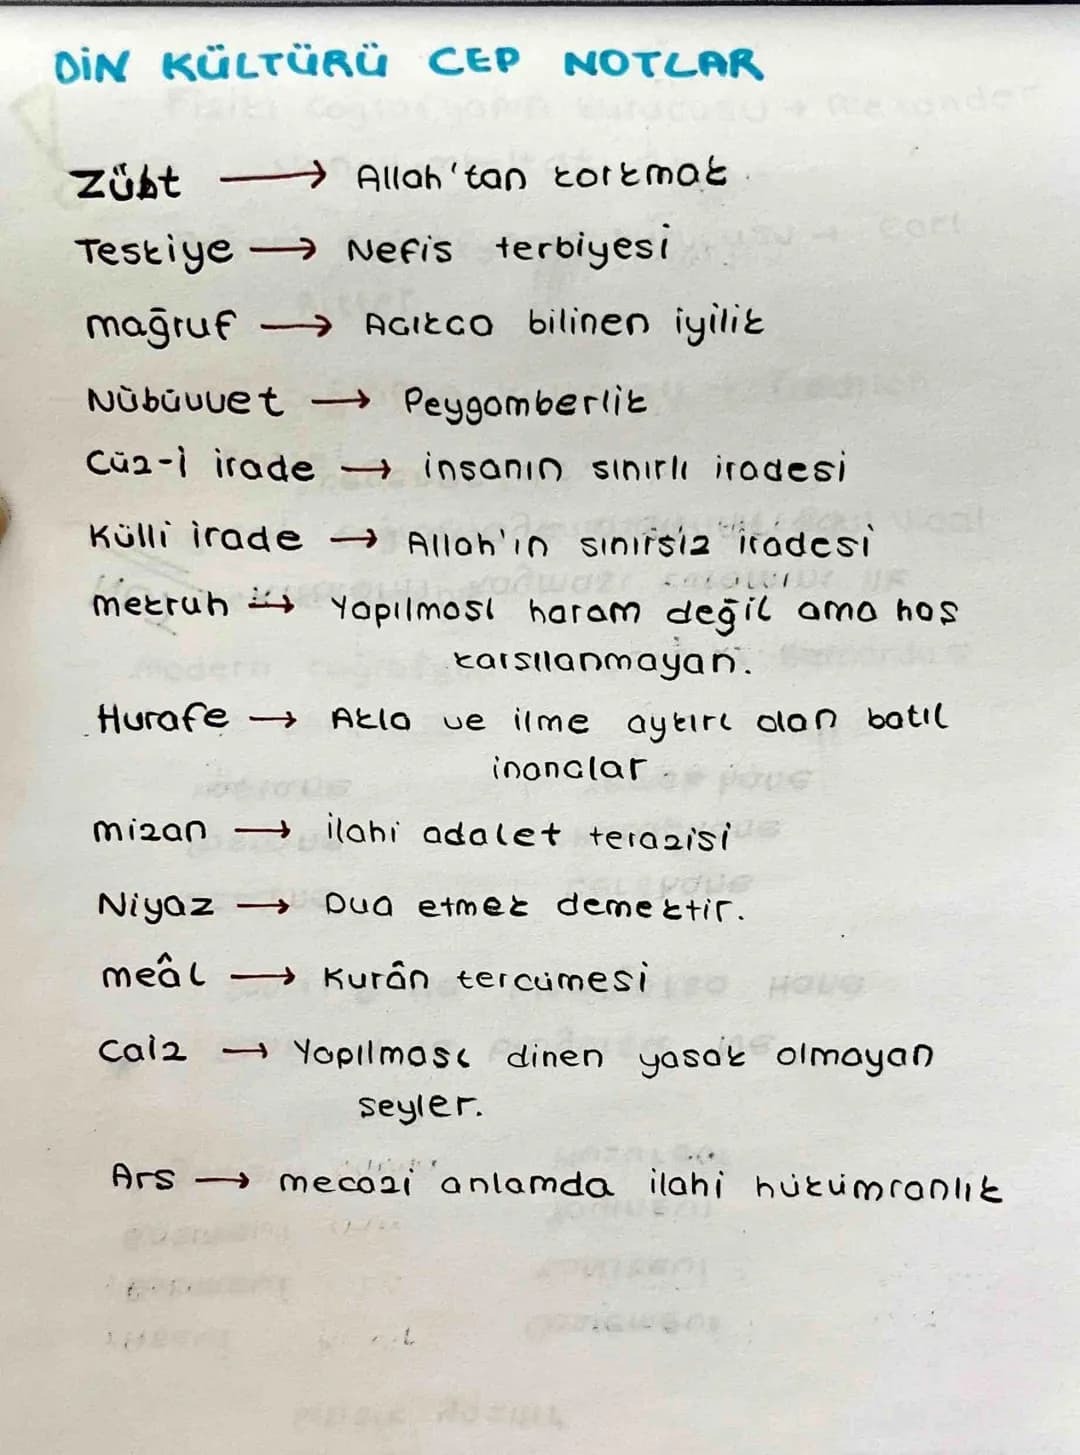 DİN KÜLTÜRÜ CEP NOTLAR
Zübt → Allah'tan korkmak
Teskiye → Nefis terbiyesi
mağruf → Acıkca bilinen iyilik
Nübüvvet → Peygamberlik
Cüz-İ irade → insanın sınırlı iradesi
Külli irade → Allah'ın sınırsız iradesi
mekruh → Yapılması haram değil ama hos
karsılanmayan.
Hurafe → Akla ve ilme aykırı olan batıl
inanclar
mizan → ilahi adalet terazisi
Niyaz → Dua etmek demektir.
meâl → Kurân tercümesi
Caiz → Yapılması dinen yasak olmayan
seyler.
Ars → mecazi anlamda ilahi hükümranlık